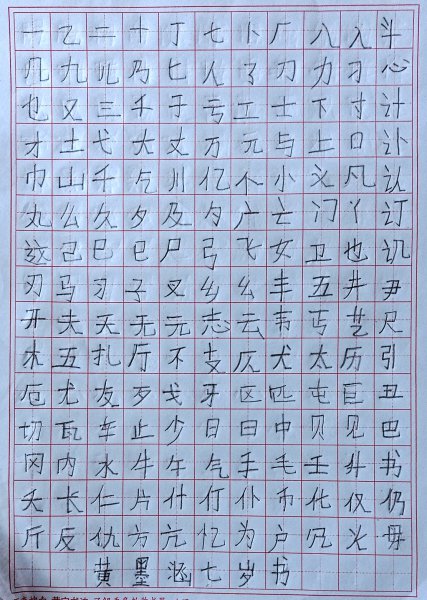 一乙二十丁七卜厂八入斗
几九儿乃匕人了刀力刁心
也又三干于亏工士下寸计
才土弋大丈万元与上口讣
巾山千乞川亿个小义凡认
丸么久夕及勺广亡门丫订
己巳巳尸弓飞女卫也讥
刃马习子叉乡幺丰五井尹
开夫天无元志云韦丐艺尺
木五扎厅不支仄犬太历引
厄尤友歹戈牙区匹屯巨丑
切瓦车止少日曰中贝见巴
冈内水牛午气手毛壬升书
夭长仁片什仃仆币化仅仍
斤反仇方亢忆为户冗火毋
黄墨涵七岁书